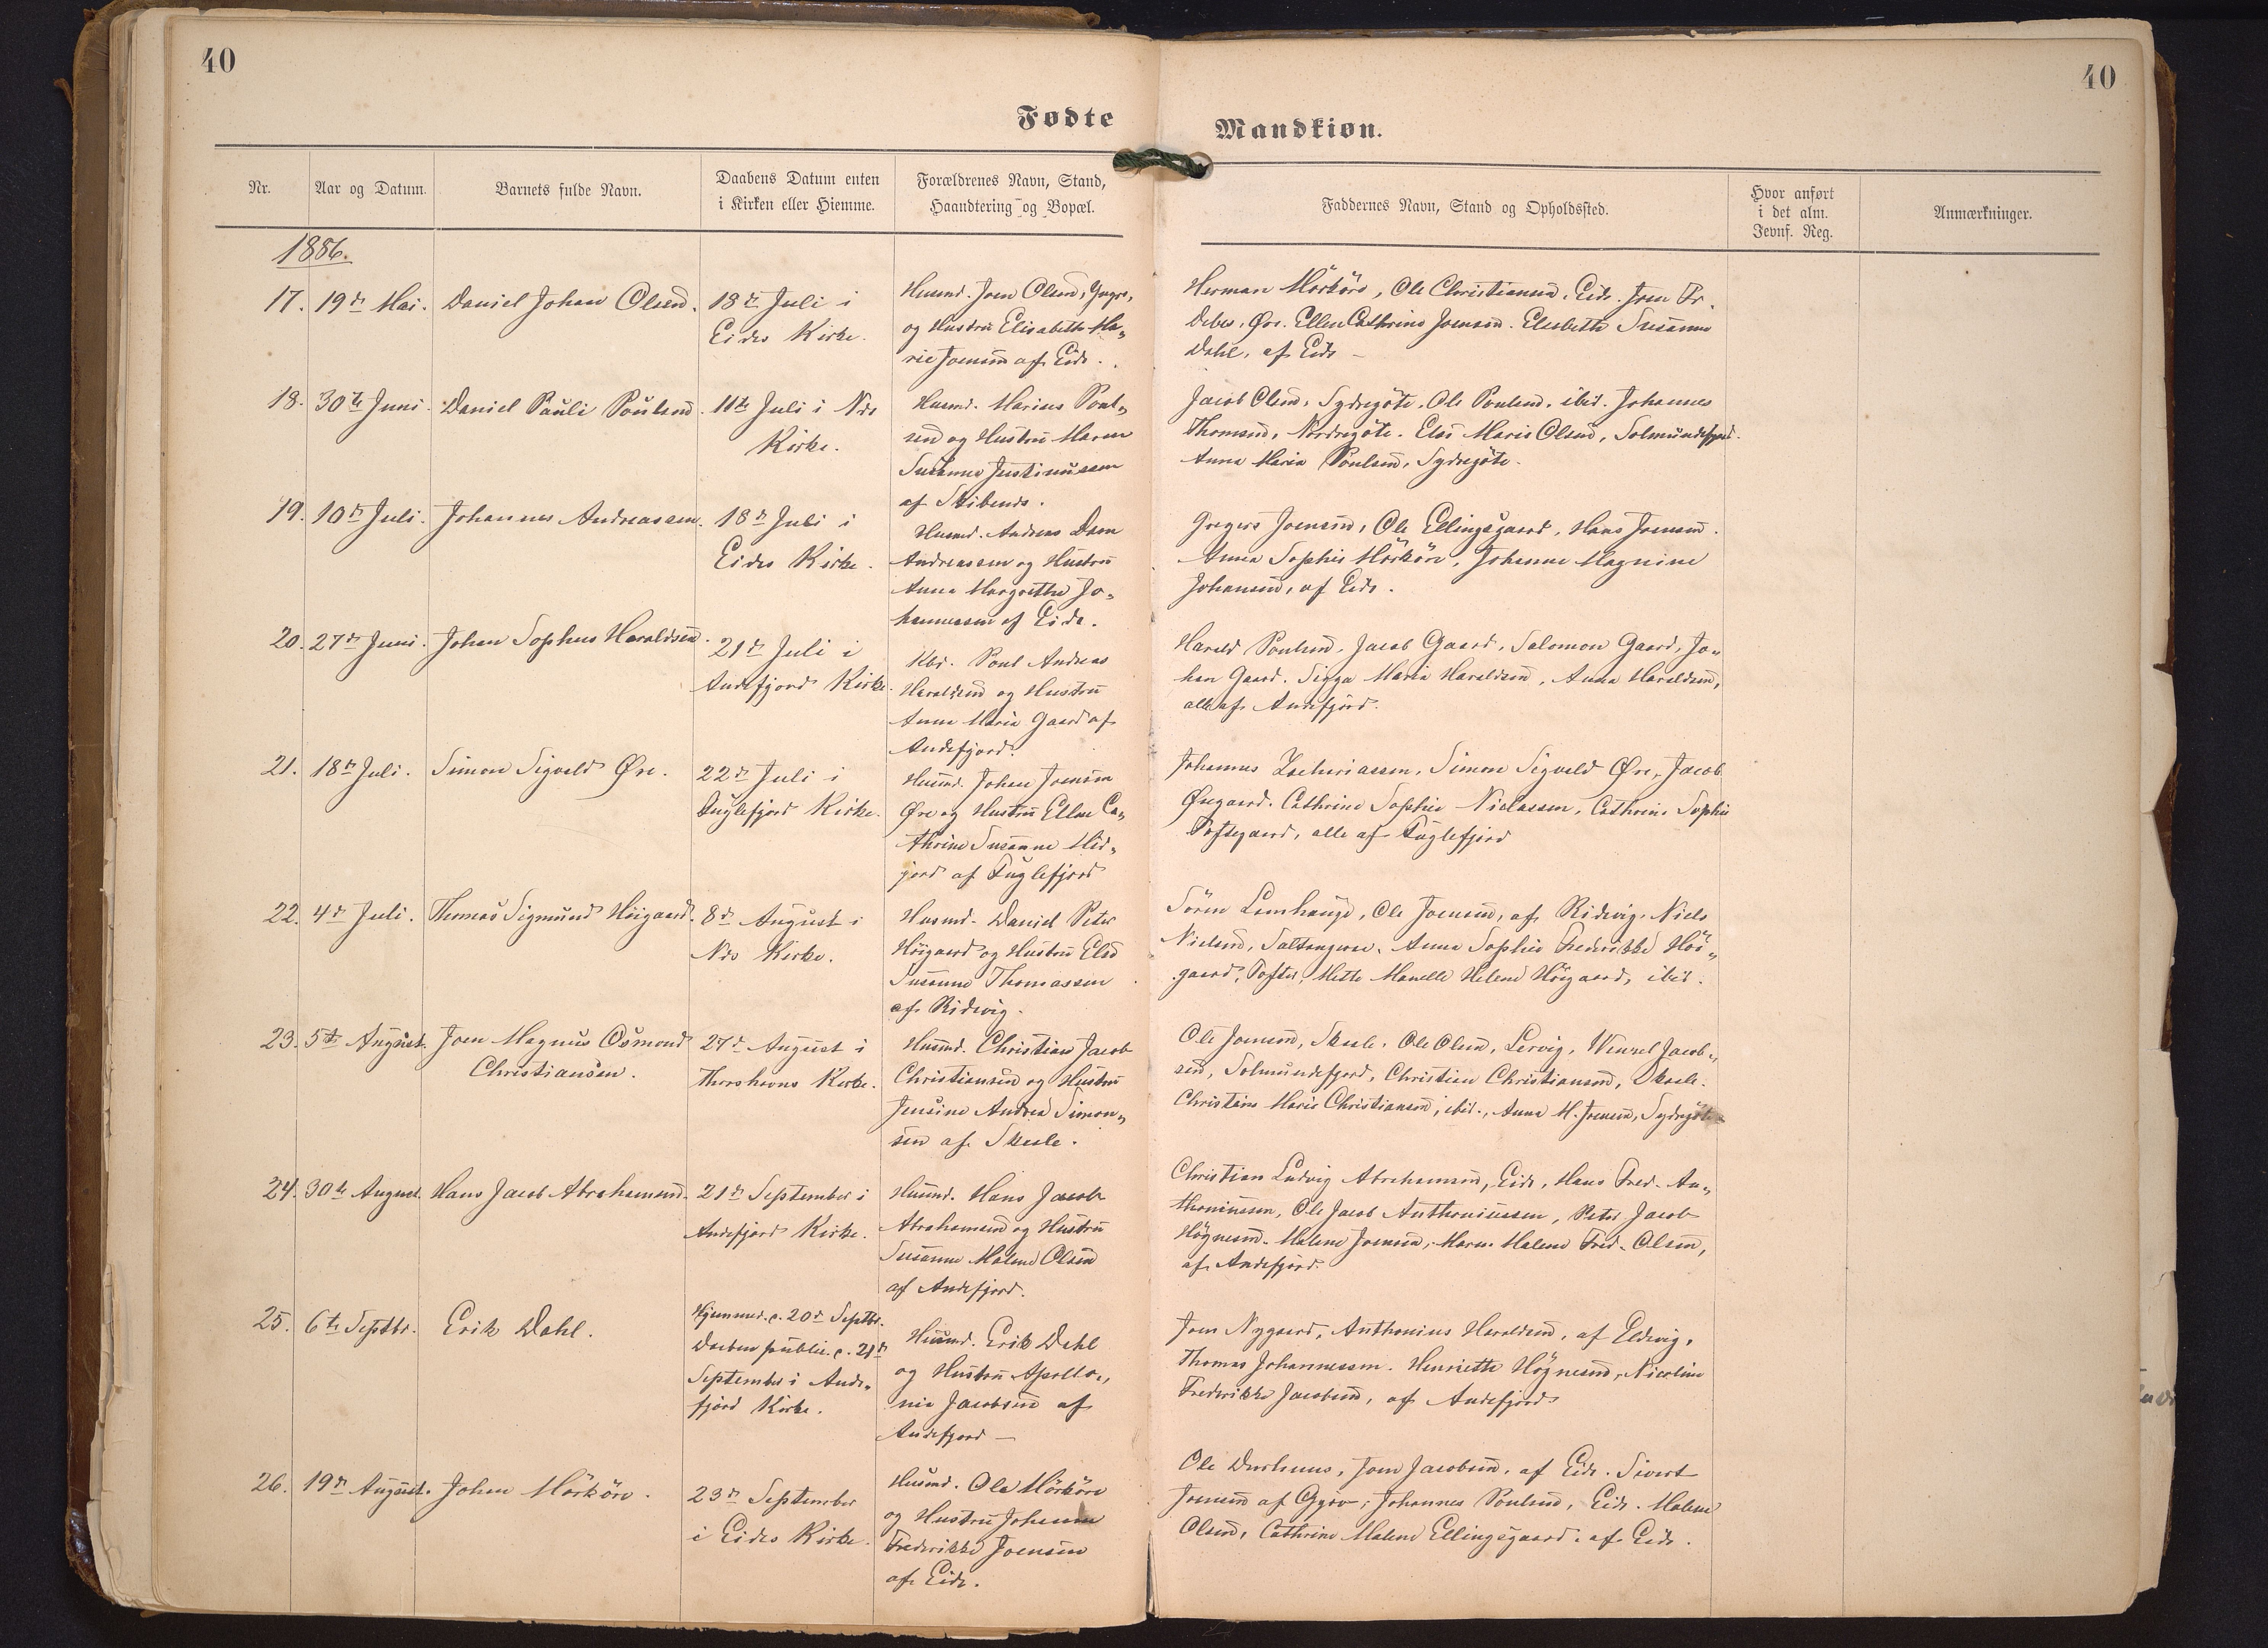 40
40
Fødte
Mandkiøn.
Nr.
Aar og Datum.
Barnets fulde Navn.
Daabens Datum enten
i Kirken eller Hiemme.
Forældrenes Navn, Stand,
Haandtering og Bopæl.
Faddernes Navn, Stand og Opholdssted.
Hvor anført
i det alm.
Jevnf. Reg.
Anmærkninger.
1886.
17. 19de Mai. Daniel Johan Olsen.
18de Juli i
Eides Kirke.
Husmd. Joen Olsen,
og Hustru Elisabeth Ma„
rie Joensen af Eide.
Herman Mörköre, Ole Christiansen, Eide. Joen Fr.
Debes, Øre. Ellen Cathrine Joensen. Elsebeth Susanne
Dahl, af Eide —
18. 30te Juni. Daniel Pauli Poulsen.
11te Juli i Nes
Kirke.
Husmd. Marius Poul„
sen og Hustru Maren
Susanne Justinussen
af Skibenes.
Jacob Olsen, Sydregöte. Ole Poulsen, ibid. Johannes
Thomsen, Nordregöte. Else Marie Olsen, Solmundefjord.
Anna Maria Poulsen, Sydregöte.
19. 10de Juli. Johannes Andreassen.
18de Juli i
Eides Kirke.
Husmd. Andreas Dam
Andreassen og Hustru
Anna Margrethe Jo„
hannessen af Eide.
Gregers Joensen, Ole Ellingsgaard, Hans Joensen.
Anna Sophie Mörköre, Johanne Magnine
Johansen, af Eide.
20. 27de Juni. Johan Sophus Haraldsen.
21de Juli i
Andefjord Kirke.
Kbd. Poul Andreas
Haraldsen og Hustru
Anna Maria Gaard af
Andefjord.
Harald Poulsen, Jacob Gaard, Salomon Gaard, Jo„
han Gaard. Sigga Maria Haraldsen, Anna Haraldsen,
alle af Andefjord.
21. 18de Juli. Simon Sigvald Øre.
22de Juli i
Fuglefjord Kirke.
Husmd. Johan Joensen
Øre og Hustru Ellen Ca„
thrine Susanne Mid„
jord af Fuglefjord
Johannes Zachariassen, Simon Sigvald Øre, Jacob
Øregaard. Cathrine Sophie Niclassen, Cathrine Sophie
Toftegaard, alle af Fuglefjord
22. 4de Juli. Thomas Sigmund Höigaard.
8de August i
Nes Kirke.
Husmd. Daniel Peter
Höigaard og Hustru Else
Susanne Thomassen
af Ridevig.
Sören Lamhauge, Ole Joensen, af Ridevig. Niels
Nielsen, Saltangeren. Anna Sophie Frederikke Höi„
gaard, Tofter, Mette Helene Höigaard, ibid.
23. 5te August. Joen Magnus Osmond
Christiansen.
27de August i
Thorshavns Kirke.
Husmd. Christian Jacob
Christiansen og Hustru
Jensine Andrea Simon„
sen af Skaale.
Ole Joensen, Skaale. Ole Olsen, Lervig, Wenzel Jacob„
sen, Solmundefjord, Christian Christiansen, Skaale.
Christine Marie Christiansen, ibid., Anna M. Joensen, Sydregöte
24. 30te August. Hans Jacob Abrahamsen.
21de September i
Andefjord Kirke.
Husmd. Hans Jacob
Abrahamsen og Hustru
Susanne Malene Olsen
af Andefjord.
Christian Ludvig Abrahamsen, Eide, Hans Fred. An„
thoniussen, Ole Jacob Anthoniussen, Peter Jacob
Högnesen. Malene Joensen, Maren Malene Fred. Olsen,
af Andefjord.
25. 6te Septbr. Erik Dahl.
Hjemmed. c. 20de Septbr.
Daaben public. c. 21de
September i Ande„
fjord Kirke.
Husmd. Erik Dahl
og Hustru Apollo„
nia Jacobsen af
Andefjord —
Joen Nygaard, Anthonius Haraldsen, af Eldevig,
Thomas Johannessen. Henriette Högnesen, Nicoline
Frederikke Jacobsen, af Andefjord
26. 19de August. Johan Mörköre.
23de September
i Eides Kirke.
Husmd. Ole Mörköre
og Hustru Johanne
Frederikke Joensen
af Eide.
Ole Durhuus, Joen Jacobsen, af Eide. Sivert
Joensen af Gjov, Johannes Poulsen, Eide. Malene
Olsen, Cathrine Malene Ellingsgaard, af Eide.